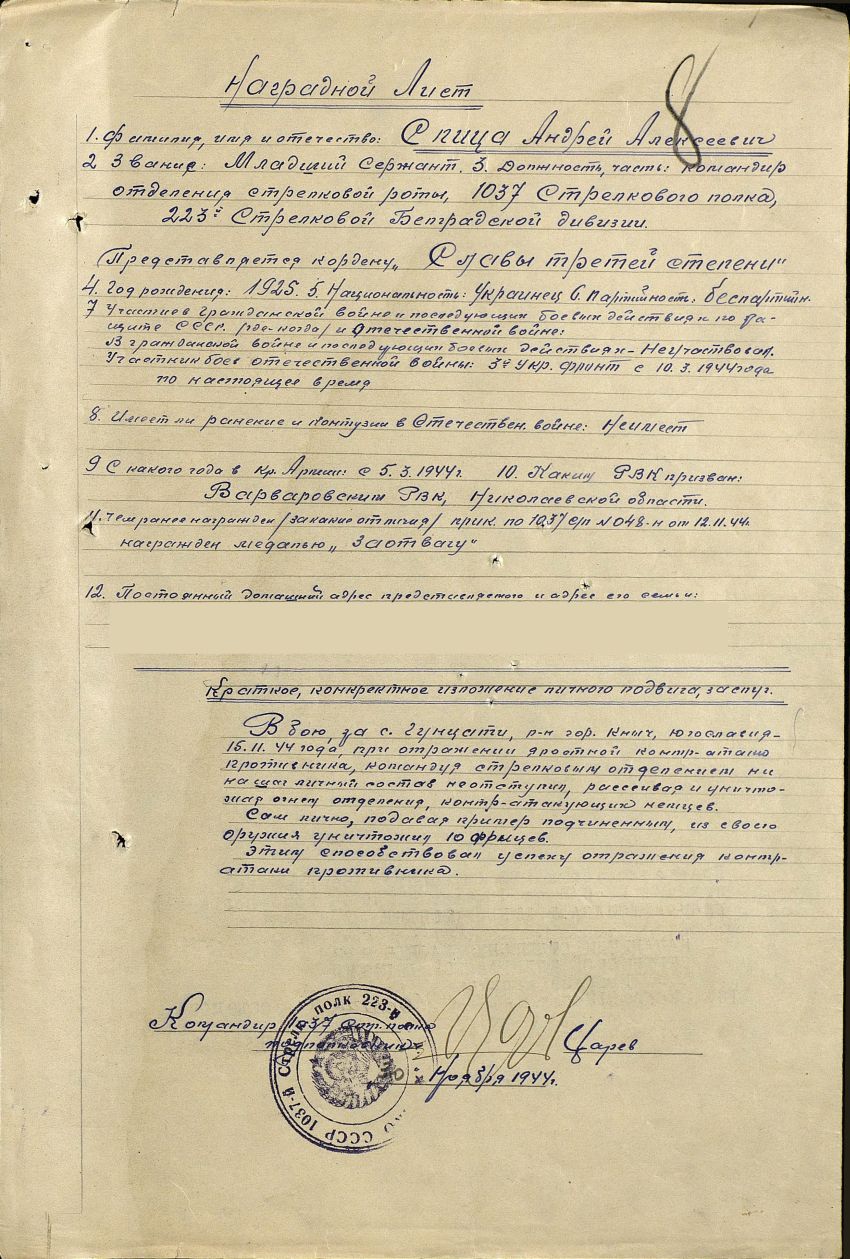 8
Наградной Лист
1. Фамилия, имя и отечество: Спица Андрей Алексеевич
2 Звание: Младший Сержант. 3. Должность, часть: командир
отделения стрелковой роты, 1037 Стрелкового полка,
223й Стрелковой Белградской дивизии.
Представляется кордену „Славы третей степени"
4. Год рождения: 1925. 5. Национальность: Украинец 6. Партийность: беспартийн.
7 Участие в гражданской войне и последующих боевых действиях по за-
щите СССР /где-когда/ и Отечественной войне:
В гражданской войне и последующих боевых действиях – Неучаствовал.
Участник боев отечественной войны: 3й Укр. фронт с 10.3.1944 года
по настоящее время
8. Имеет ли ранение и контузии в Отечествен. войне: Неимеет
9 С какого года в Кр. Армии: с 5.3.1944г. 10. Каким РВК призван:
Варваровским РВК, Николаевской области.
11. Чем ранее награжден /закакие отличия/ прик. по 1037 с/п №048-н от 12.11.44г.
награжден медалью „Заотвагу"
12. Постоянный домашний адрес представляемого и адрес его семьи:
Краткое, конкректное изложение личного подвига, заслуг.
В бою, за с. Гунцати, р-н гор. Книч, югославия-
15.11.44 года, при отражении яростной контр-атаки
противника, командуя стрелковым отделением ни
нашаг личный состав неотступил, рассеивая и уничто-
жая огнем отделения, контр-атакующих немцев.
Сам лично, подавая пример подчиненным, из своего
оружия уничтожил 10 фрицев.
Этим способствовал успеху отражения контр-
атаки противника.
Командир 1037 Стр. полка
подполковник Царев
Ноября 1944г.
1037-й СТРЕЛК. ПОЛК 223-й СССР